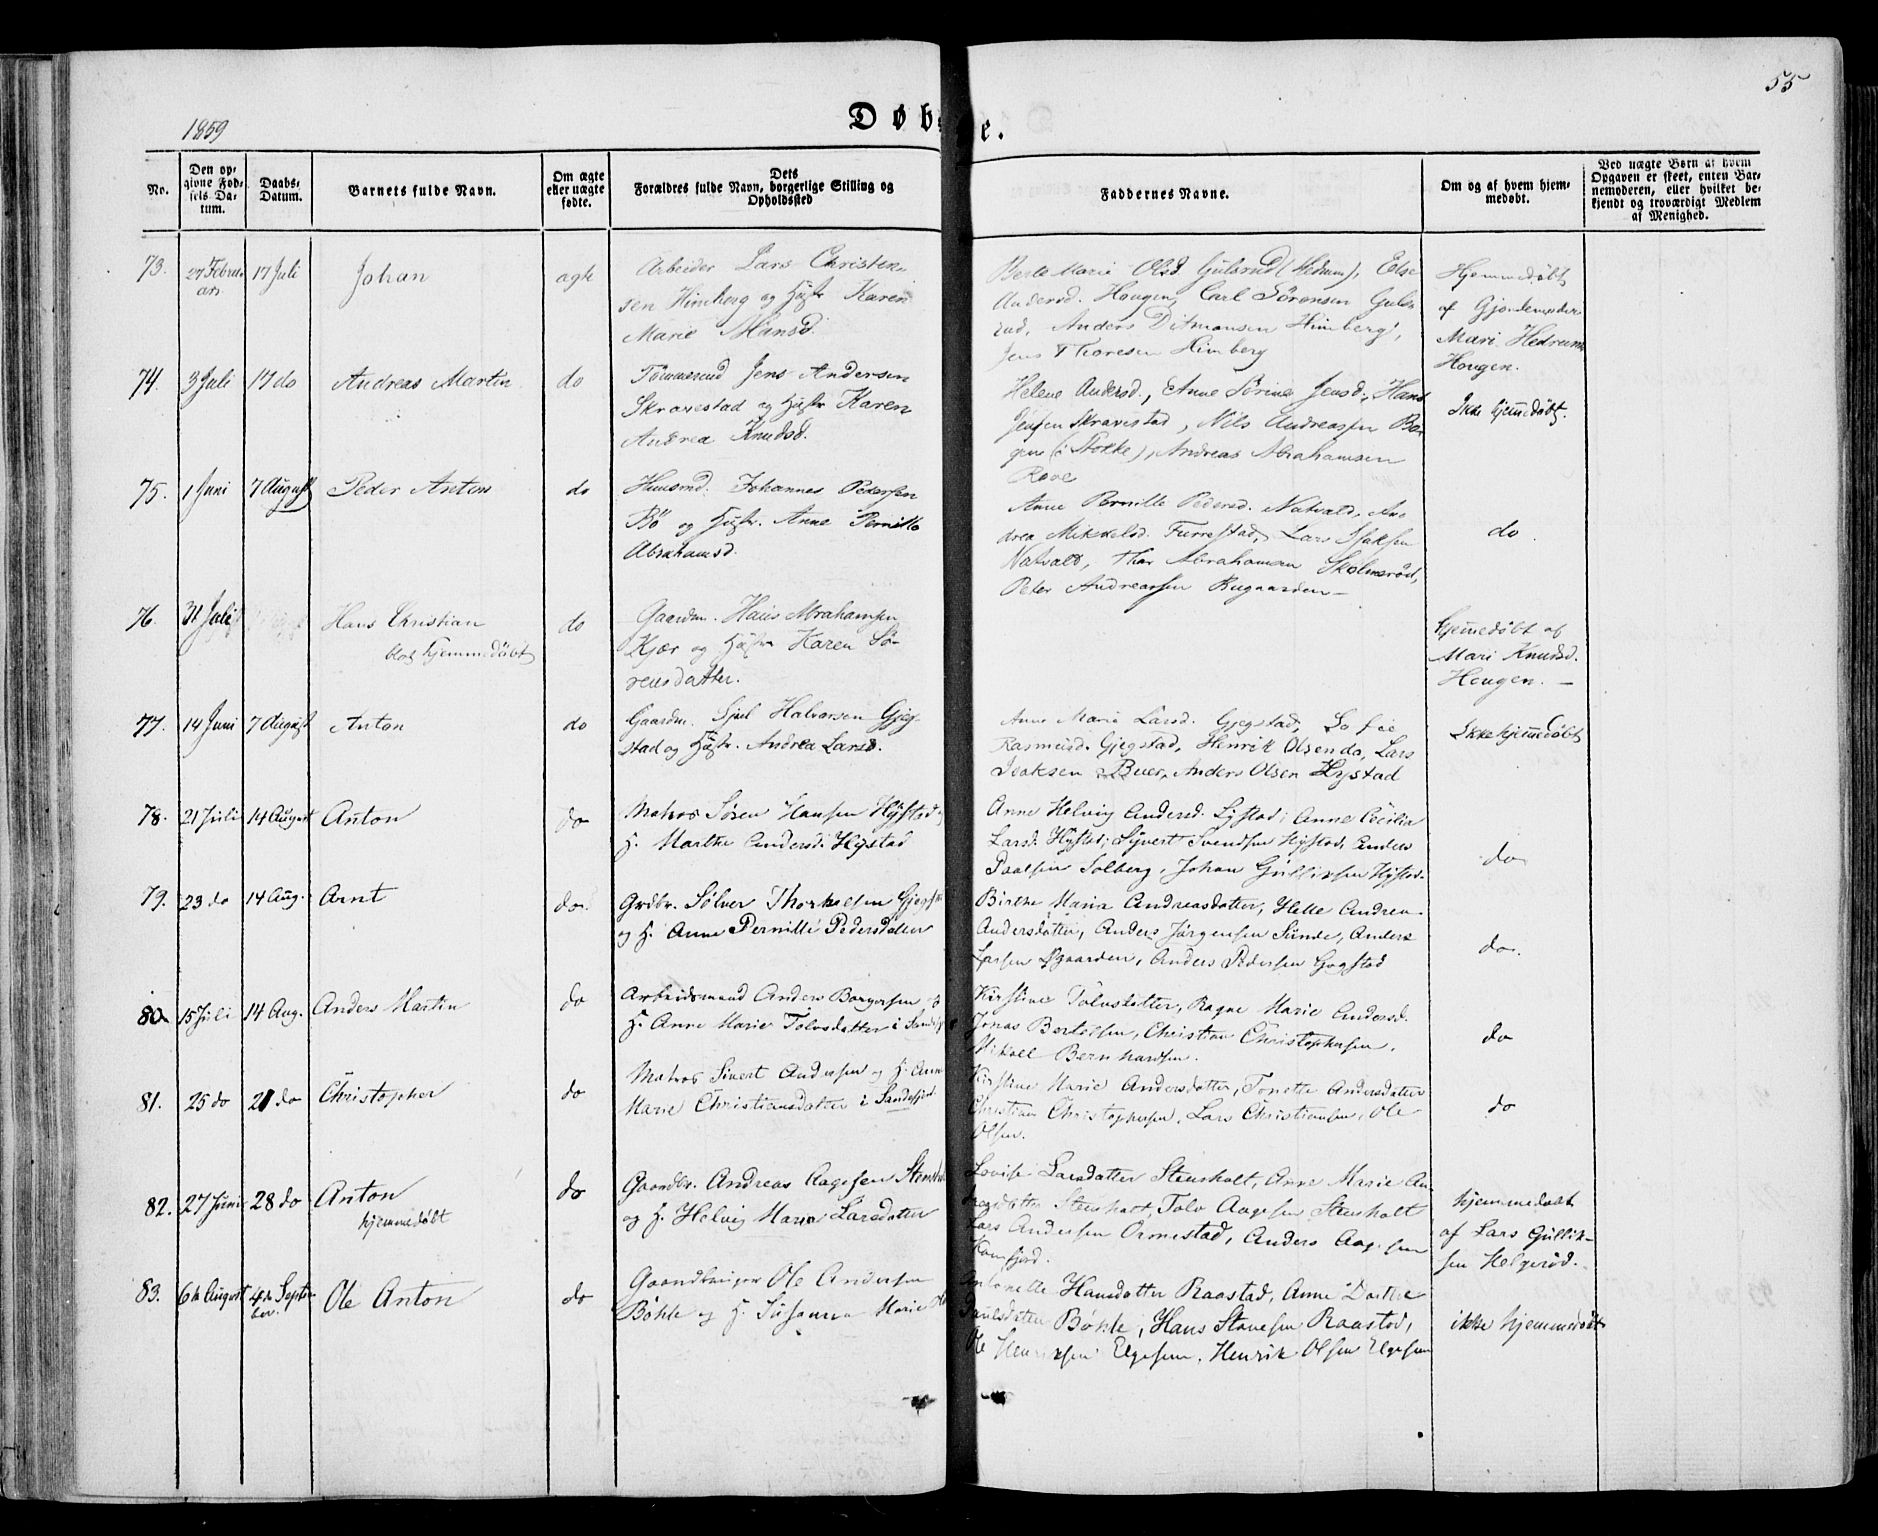 55
1859
Døbte.
No.
Den opgivne Fødsels Datum.
Daabs-Datum.
Barnets fulde Navn.
Om ægte eller uægte fødte.
Dets Forældres fulde Navn, borgerlige Stilling og Opholdssted
Faddernes Navne.
Om og af hvem hjemmedøbt.
Ved uægte Børn af hvem Opgaven er skeet, enten Barnemoderen, eller hvilket bekjendt og troværdigt Medlem af Menighed.
73. 27 Februar 17 Juli Johan ægte
Arbeider Lars Christen-
sen Himberg og Hustr Karen
Marie Hansd.
Berte Marie Olsd. Gulsrud (Hedrum), Else
Andersd. Hougen, Carl Sørensen Guls-
rud, Anders Ditmansen Himberg,
Jens Thoresen Himberg
Hjemmedøbt
af Gjordemoder
Mari Hedrum
Hougen.
74. 3 Juli 17 do Andreas Martin do
Tømmermd Jens Andersen
Skravestad og Hustr Karen
Andrea Knudsd.
Helene Andersd., Anne Sørine Jensd., Hans
Jensen Skravestad, Nils Andreassen Bor-
gen (i Stokke), Andreas Abrahamsen
Rove
Ikke hjemmedøbt.
75. 1 Juni 7 August Peder Anton do
Huusmd. Johannes Pedersen
Bö og Hustr. Anne Pernille
Abrahamsd.
Anne Pernille Pedersd. Natvald, An-
drea Mikkelsd. Furrestad, Lars Isaksen
Natvald, Thor Abrahamsen Skolmerød,
Peter Andreassen Rugaarden
do
76. 31 Juli Hans Christian do
blot hjemmedøbt
Gaardm. Hans Abrahamsen
Kjær og Hustr Karen Sø-
rensdatter.
hjemmedøbt af
Mari Knudsd.
Hougen.
77. 14 Juni 7 August Anton do
Gaardm. Halvorsen Gjeg-
stad og Hustr. Andrea Larsd.
Anne Marie Larsd. Gjegstad, Sofie
Rasmusd. Gjegstad, Henrik Olsen do, Lars
Isaksen Buer, Anders Olsen Hystad
Ikke hjemmedøbt
78. 21 Juli 14 August Anton do
Matros Søren Hansen Hystad
H. Marthe Andersd. Hystad
Anne Helvig Andersd. Hystad, Anne Cecilia
Larsd. Hystad, Syvert Svendsen Hystad, Anders
Paalsen Solberg, Johan Gulliksen Hystad.
do
79. 23 do 14 Aug. Arnt do
Grdbr. Sölver Thorkelsen Gjegst
og H. Anne Pernille Pedersdatter
Birthe Maria Andreasdatter, Helle Andrea
Andersdatter, Anders Jørgensen Sunde, Anders
Larsen Øgaarden, Anders Pedersen Gogstad
do.
80. 15 Juli 14 Aug. Anders Martin do
Arbeidsmand Anders Borgersen og
H. Anne Marie Tolvsdatter i Sandefj
Kirstine Tolvsdatter, Ragne Marie Andersd.
Jonas Bertelsen, Christian Christophersen,
Mikall Bernhardsen.
do
81. 25 do 21 do Christopher do
Matros Sivert Andersen og H. Anne
Marie Christiansdatter i Sandefjord.
Kirstine Marie Andersdatter, Tonette Andersdatter
Christian Christophersen, Lars Christiansen, Ole
Olsen.
do
82. 27 Juni 28 do Anton do
hjemmedøbt
Gaardbr. Andreas Aagesen Stens
og H. Helvig Maria Larsdatter
Lovise Larsdatter Stensholt, Anne Marie An-
dreasdatter Stensholt, Tolv Aagesen Stensholt
Lars Andersen Ormestad, Anders Aagesen
Kamfjord.
hjemmedøbt
af Lars Gullik-
sen Helgerød.
83. 6te August 4de Septem-
ber. Ole Anton do
Gaardbruger Ole Andersen
Böhle og H. Susanna Marie
Antonette Hansdatter Raastad, Anne Dorthe
Paulsdatter Böhle, Hans Stavesen Raastad,
Ole Henriksen Elgesem, Henrik Olsen Elgesem
ikke hjemmedøbt